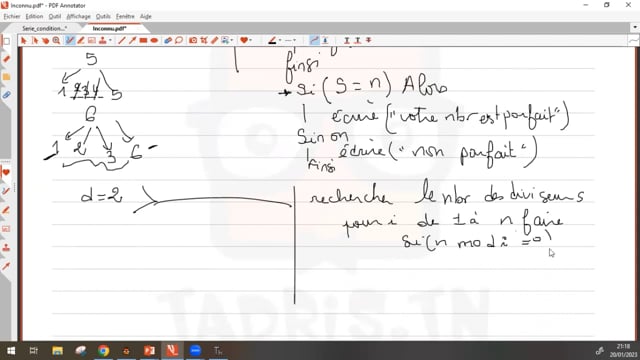 Inconnu.pdf* - PDF Annotator
Fichier Édition Affichage Insertion Outils Extras Fenêtre Aide
Serie_condition... Inconnu.pdf*
5
1 2 3 4 5
6
1 2 3 6
d=2
finsi
Si (S=n) Alors
écrire ("votre nbr est parfait")
Sinon
écrire ("non parfait")
finsi
rechercher le nbr des diviseurs
pour i de 1 à n faire
Si (n mod i = 0)
TADRIS.TN
21:18
20/01/2023